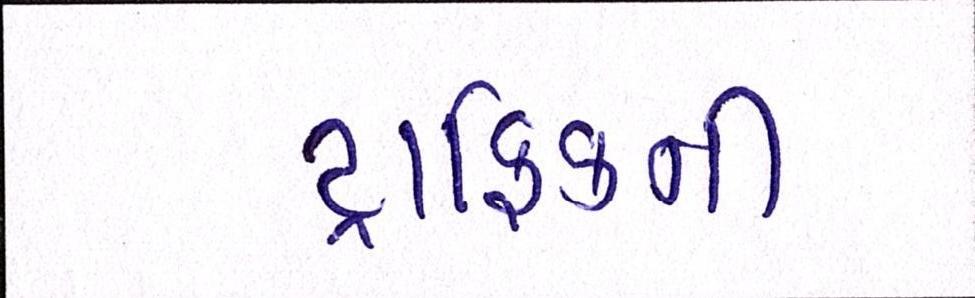 ટ્રાફિકની